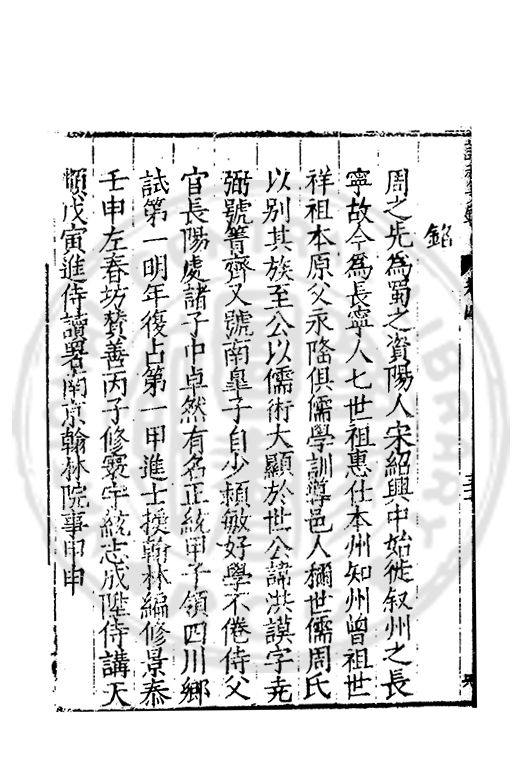 銘
周之先為蜀之資陽人宋紹興中始徙叙州之長
寧故今為長寧人七世祖惠仕本州知州曾祖世
祥祖本原父永隆俱儒學訓導邑人稱世儒周氏
以別其族至公以儒術大顯於世公諱洪謨字堯
弼號箐齋又號南臯子自少穎敏好學不倦侍父
官長陽處諸子中卓然有名正統甲子領四川鄉
試第一明年復占第一甲進士授翰林編修景泰
壬申左春坊贊善丙子修寰宇統志成陞侍講天
順戊寅進侍讀署南京翰林院事甲申